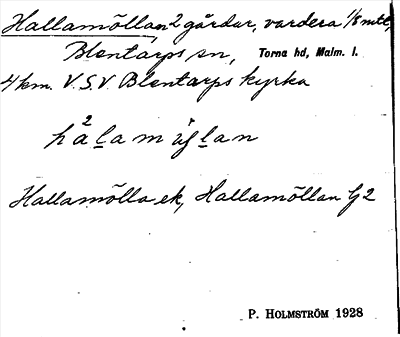 Hallamöllan 2 gårdar, vardera 1/8 mtl,
Blentarps sn, Torna hd, Malm. l.
4 km. V.S.V. Blentarps kyrka
Hallamölla ek, Hallamöllan G 2
P. HOLMSTRÖM 1928